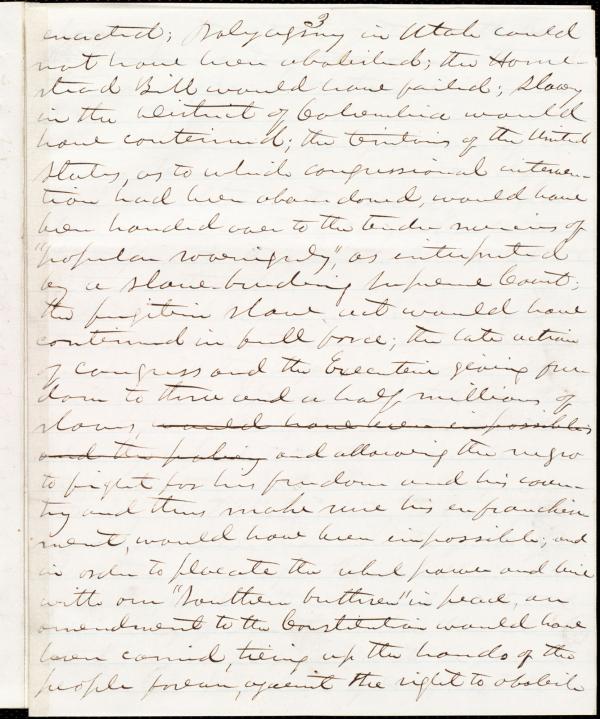 3
enacted; Polygamy in Utah could
not have been abolished; the Home-
stead Bill would have failed; slavery
in the District of Columbia would
have continued; the territories of the United
States, as to which congressional interven-
tion had been abandoned, would have
been handed over to the tender mercies of
"popular sovereignty", as interpreted
by a slave-breeding Supreme Court;
the fugitive slave act would have
continued in full force; the late action
of Congress and the Executive giving free-
dom to three and a half millions of
slaves, would have been impossible
and the policy and allowing the negro
to fight for his freedom and his coun-
try and thus make sure his enfranchise
ment, would have been impossible; and
in order to placate the rebel power and live
with our "Southern brethren" in peace, an
amendment to the Constitution would have
been carried, tieing up the hands of the
people forever, against the right to abolish